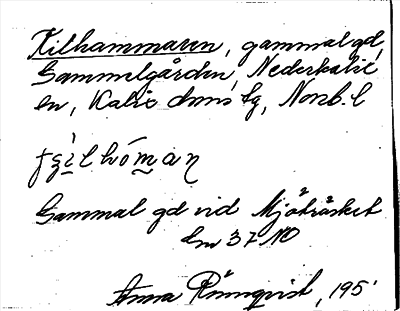 Kilhammaren, gammal gd,
Gammelgården, Nederkalix
en, Kalix dms tg, Norrb. l
Gammal gd vid Mjöträsket
37 NO
Anna Rönnqvist, 195